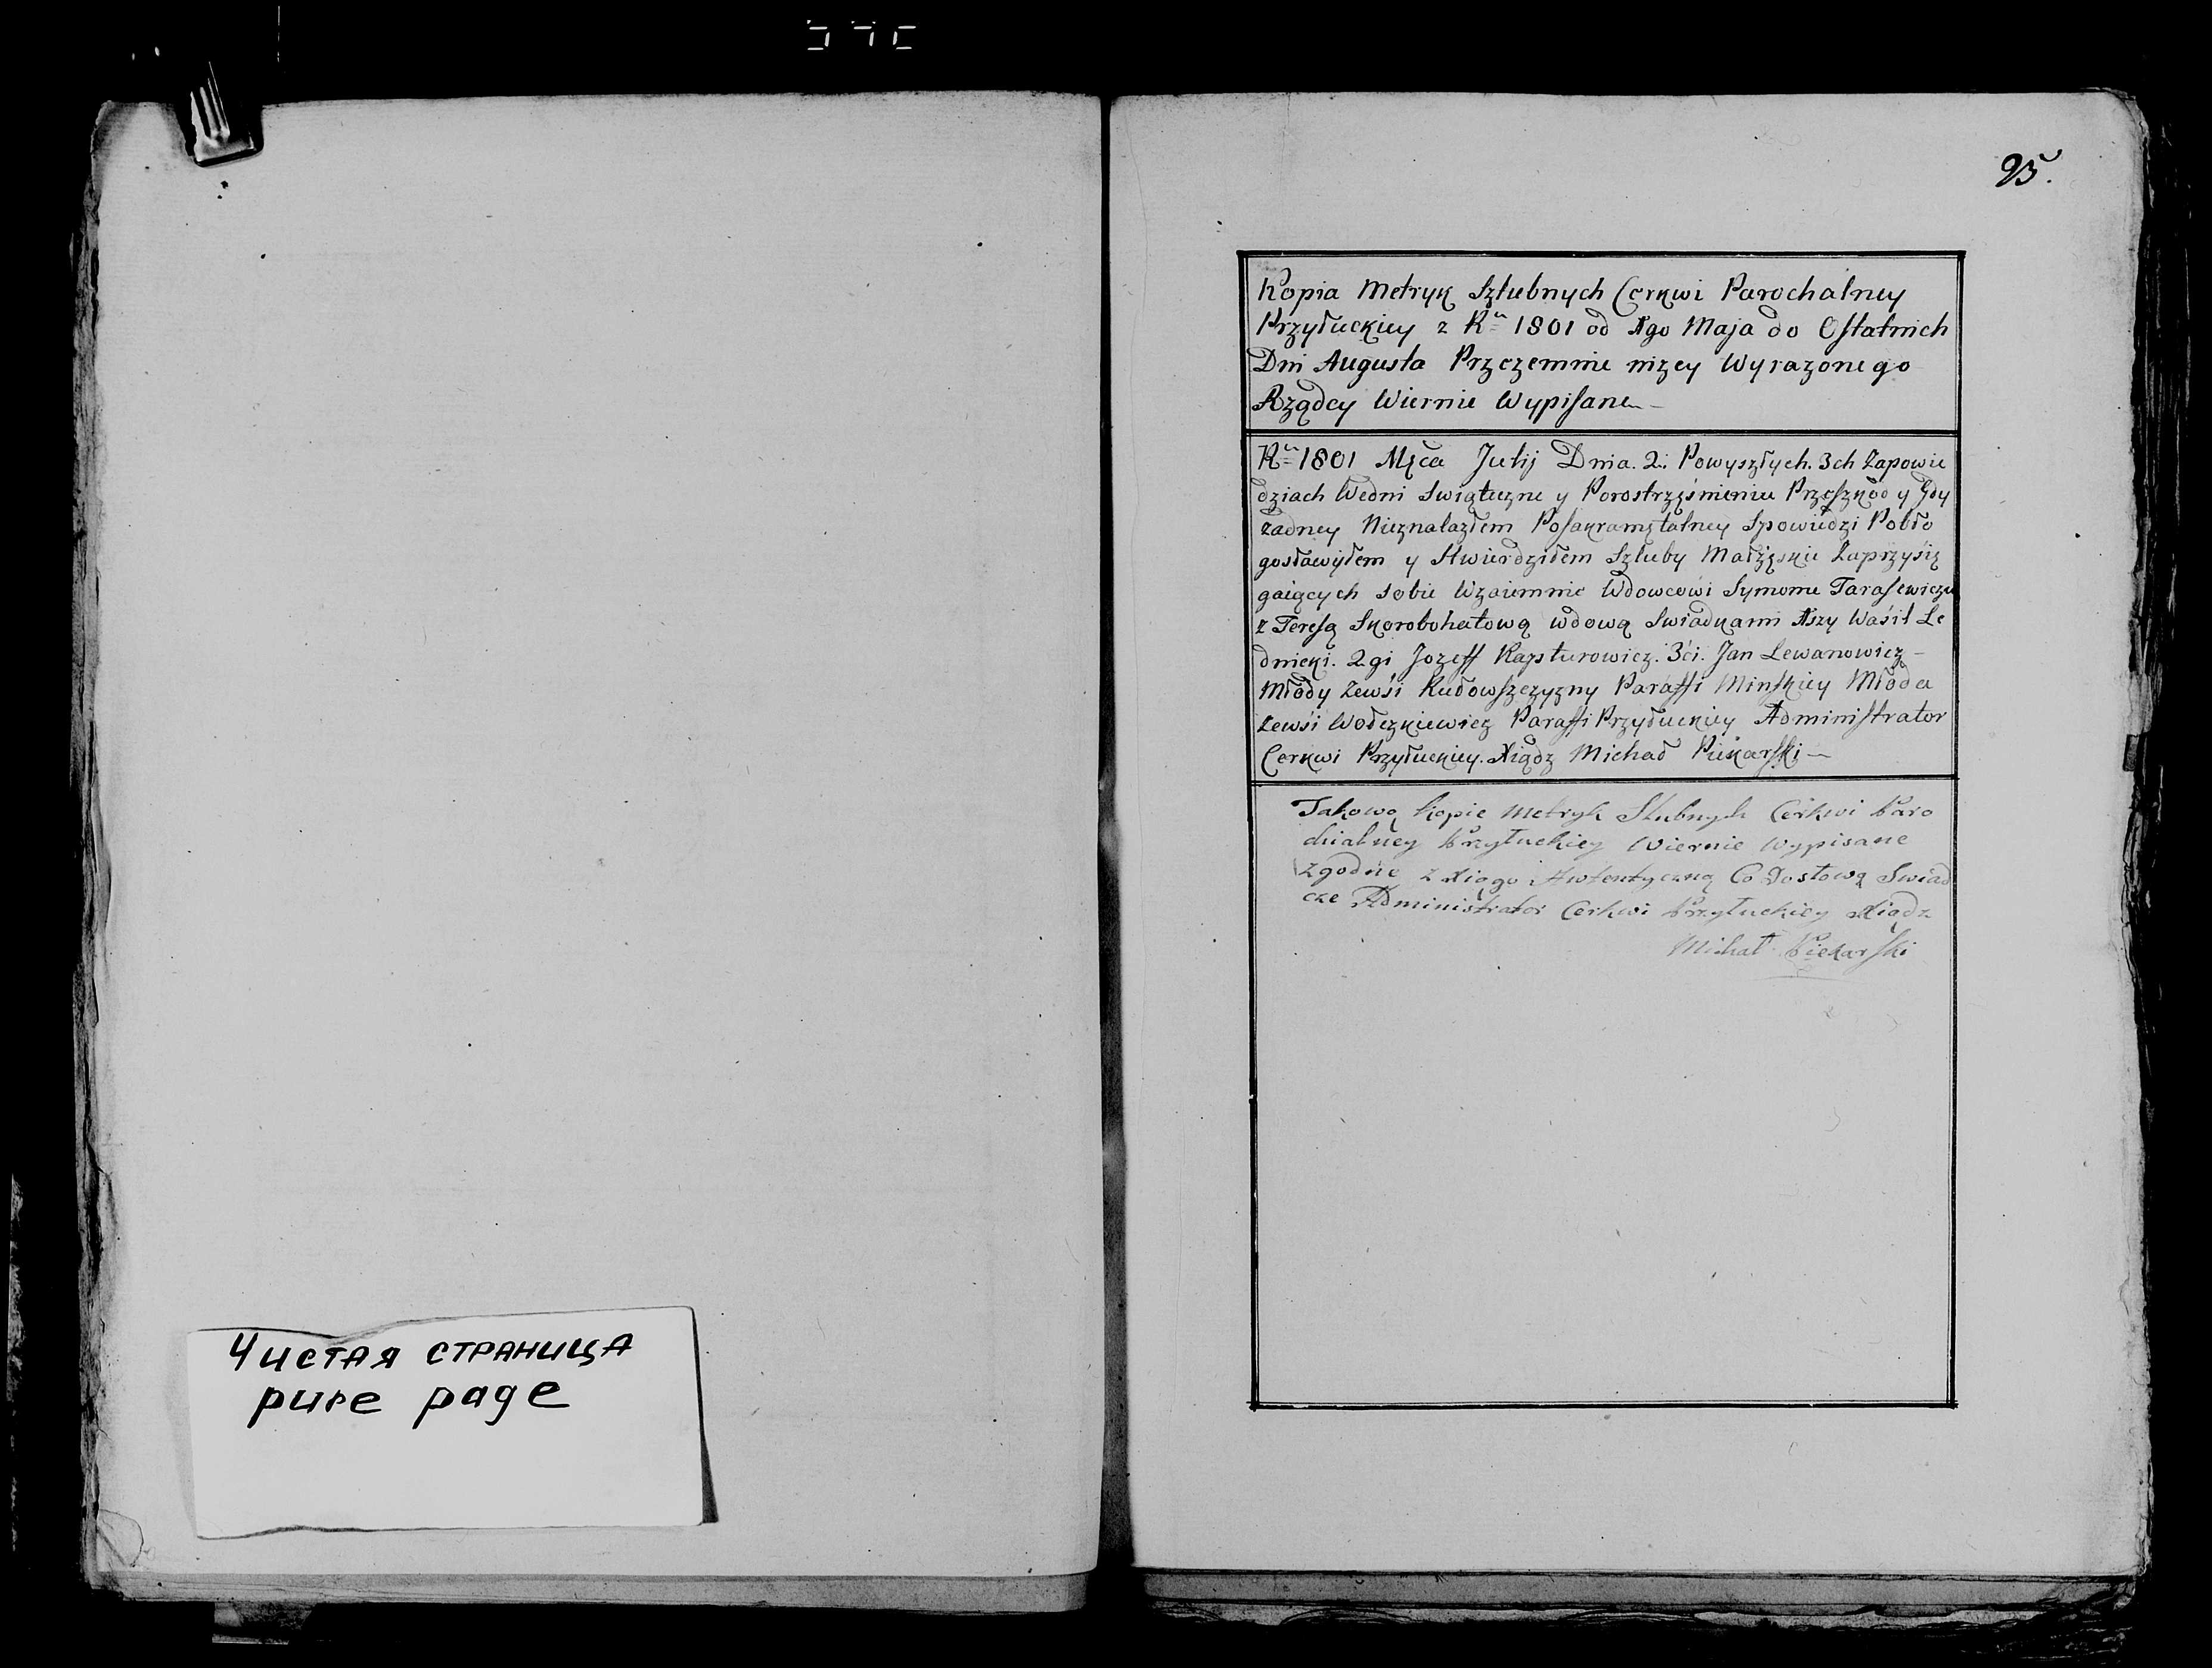 Чистая страница
pure page
95.
Kopia Metryk Szlubnych Cerkwi Parochalney
Przyłuckiey z Rᵘ 1801 od 1go Maja do Ostatnich
Dni Augusta Przezemnie nizey Wyrazonego
Rządcy Wiernie Wypisane
Rᵘ 1801 Mca Julij Dnia. 2. Powyszłych. 3ch Zapowie
dziach Wedni Swiąteczne y Porostrzęśnieniu Przeszkod y Gdy
żadney Nieznalazłem Posakramętalney Spowiedzi Pobło
gosławiłem y Stwierdziłem Szluby Małżęskie Zaprzysię
gaiących sobie Wzaiemnie Wdowcowi Symonu Tarasewiczu
z Teresą Skorobohatową wdową Swiadkami 1szy Waśil Le
dnicki. 2gi Jozeff Kapturowicz. 3ći. Jan Lewanowicz
Młody Zewśi Rudowszczyzny Paraffi Minskiey Młoda
Zewśi Wołczkiewicz Paraffi Przyłuckiey Administrator
Cerkwi Przyłuckiey. Xiądz Michał Piekarski
Takową Kopie Metryk Slubnych Cerkwi Paro
chialney Przyłuckiey Wiernie Wypisane
zgodne z Xięgo Awtentyczną Co Dosłową Swiad
cze Administrator Cerkwi Przyłuckiey Xiądz
Michał Piekarski